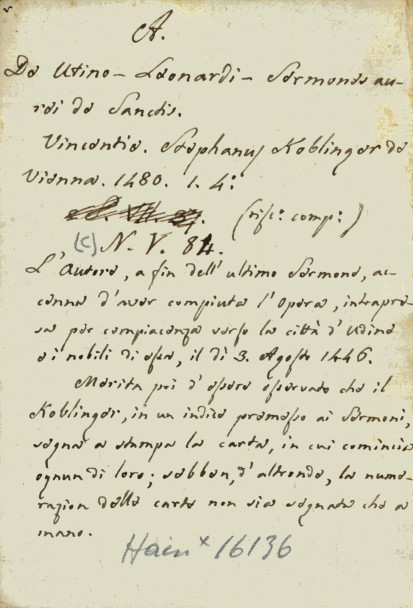 A.
De Utino - Leonardi - Sermones au-
rei de Sanctis.
Vincentie. Stephanus Koblinger de
Vienna. 1480. 1. 4:
(risc: comp:)
(c) N. V. 84.
L'Autore, a fin dell'ultimo Sermone, ac-
cenna d'aver compiuta l'opera, intrapre-
sa per compiacenza verso la città d'Udine
e i nobili di essa, il dì 3. Agosto 1446.
Merita poi d'essere osservato che il
Koblinger, in un indice premesso ai Sermoni,
segna a stampa la carta, in cui comincia
ognun di loro; sebben, d'altronde, la nume-
razion delle carte non sia segnata che a
mano.
Hain x 16136